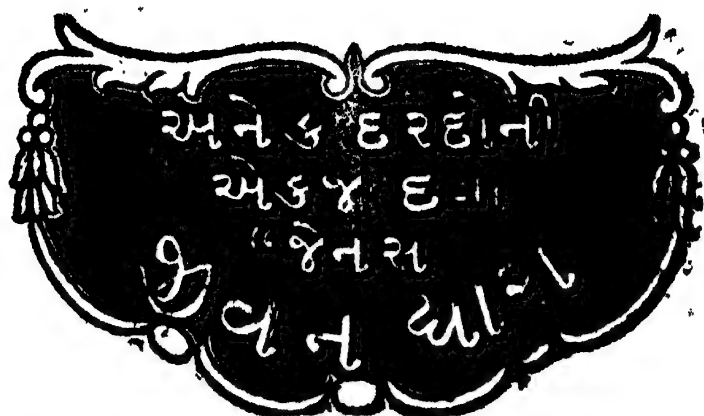 અનેક દરદોની
એકજ દવા
"જેનસ
જીવન ધારા